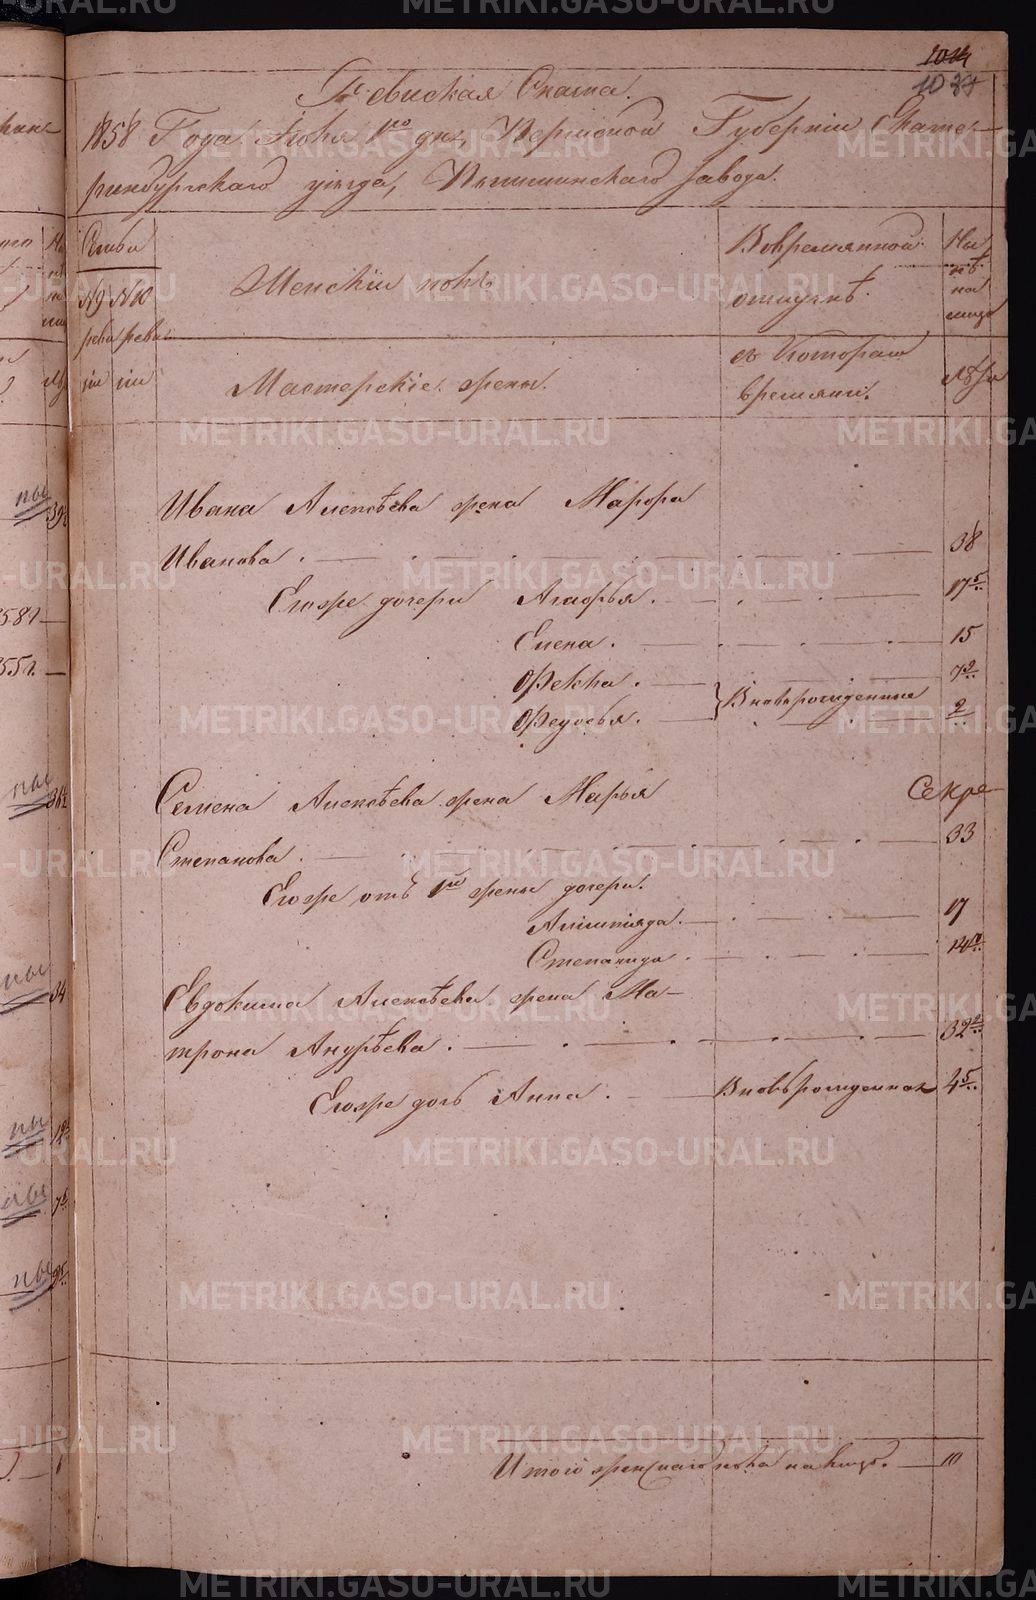 1014
Ревиская Сказка.
1858 Года Июня 1го дня, Пермской Губерніи Екате-
ринбургскаго уѣзда, Пышминскаго завода.
Семьи
Женскій полъ
Вовременной
отлучкѣ
Ны
нѣ
на
лицо
ревиревиз
Мастерскіе жены.
съ котораго
времяни.
Лѣта
Ивана Алексѣева жена Марфа
Иванова. 38
Егоже дочери Агафья. 17 5
Елена. 15
Фекла. 7
Федосья. Вновьрожденные 2
Семена Алексѣева жена Марья
Секре
Степанова. 33
Егоже отъ 1й жены дочери.
Алимпіяда. 17
Степанида. 14
Евдокима Алексѣева жена Ма-
трона Андрѣева. 32
Егоже дочь Анна. Вновьрожденная 4 5
Итого женскаго пола налицо. 10
METRIKI.GASO-URAL.RU